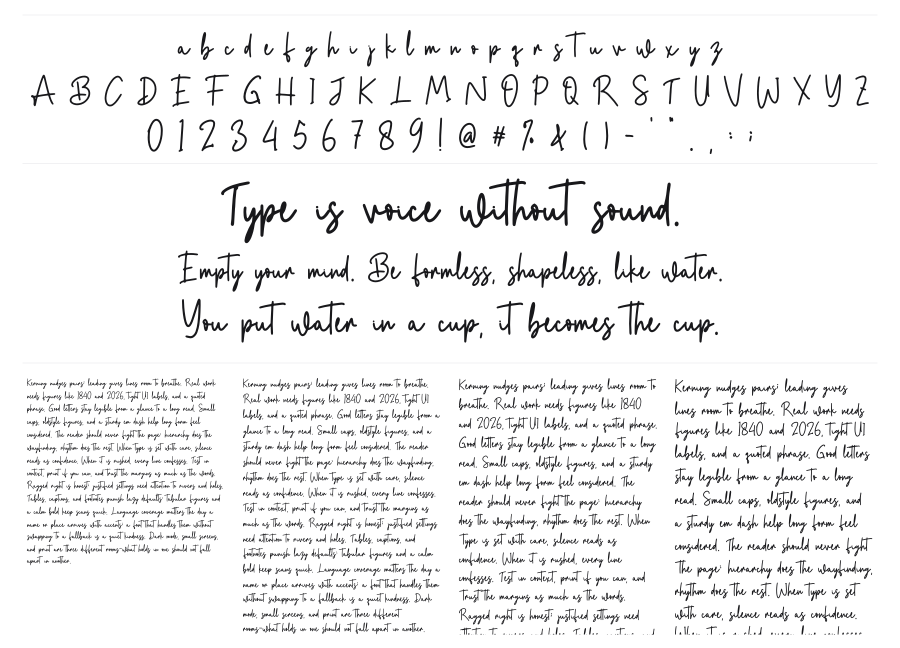 a b c d e f g h i j k l m n o p q r s t u v w x y z
A B C D E F G H I J K L M N O P Q R S T U V W X Y Z
0 1 2 3 4 5 6 7 8 9 ! @ # % & ( ) - ' " . , : ;
Type is voice without sound.
Empty your mind. Be formless, shapeless, like water.
You put water in a cup, it becomes the cup.
Kerning nudges pairs; leading gives lines room to breathe. Real work
needs figures like 1840 and 2026, tight UI labels, and a quoted
phrase. Good letters stay legible from a glance to a long read. Small
caps, oldstyle figures, and a sturdy em dash help long form feel
considered. The reader should never fight the page; hierarchy does the
wayfinding, rhythm does the rest. When type is set with care, silence
reads as confidence. When it is rushed, every line confesses. Test in
context, print if you can, and trust the margins as much as the words.
Ragged right is honest; justified settings need attention to rivers and holes.
Tables, captions, and footnotes punish lazy defaults. Tabular figures and
a calm bold keep scans quick. Language coverage matters the day a
name or place arrives with accents; a font that handles them without
swapping to a fallback is a quiet kindness. Dark mode, small screens,
and print are three different rooms-what holds in one should not fall
apart in another.
Kerning nudges pairs; leading gives lines room to breathe.
Real work needs figures like 1840 and 2026, tight UI
labels, and a quoted phrase. Good letters stay legible from a
glance to a long read. Small caps, oldstyle figures, and a
sturdy em dash help long form feel considered. The reader
should never fight the page; hierarchy does the wayfinding,
rhythm does the rest. When type is set with care, silence
reads as confidence. When it is rushed, every line confesses.
Test in context, print if you can, and trust the margins as
much as the words. Ragged right is honest; justified settings
need attention to rivers and holes. Tables, captions, and
footnotes punish lazy defaults. Tabular figures and a calm
bold keep scans quick. Language coverage matters the day a
name or place arrives with accents; a font that handles them
without swapping to a fallback is a quiet kindness. Dark
mode, small screens, and print are three different
rooms-what holds in one should not fall apart in another.
Kerning nudges pairs; leading gives lines room to
breathe. Real work needs figures like 1840
and 2026, tight UI labels, and a quoted phrase.
Good letters stay legible from a glance to a long
read. Small caps, oldstyle figures, and a sturdy
em dash help long form feel considered. The
reader should never fight the page; hierarchy
does the wayfinding, rhythm does the rest. When
type is set with care, silence reads as
confidence. When it is rushed, every line
confesses. Test in context, print if you can, and
trust the margins as much as the words.
Ragged right is honest; justified settings need
attention to rivers and holes. Tables, captions, and
Kerning nudges pairs; leading gives
lines room to breathe. Real work needs
figures like 1840 and 2026, tight UI
labels, and a quoted phrase. Good letters
stay legible from a glance to a long
read. Small caps, oldstyle figures, and
a sturdy em dash help long form feel
considered. The reader should never fight
the page; hierarchy does the wayfinding,
rhythm does the rest. When type is set
with care, silence reads as confidence.
When it is rushed, every line confesses.